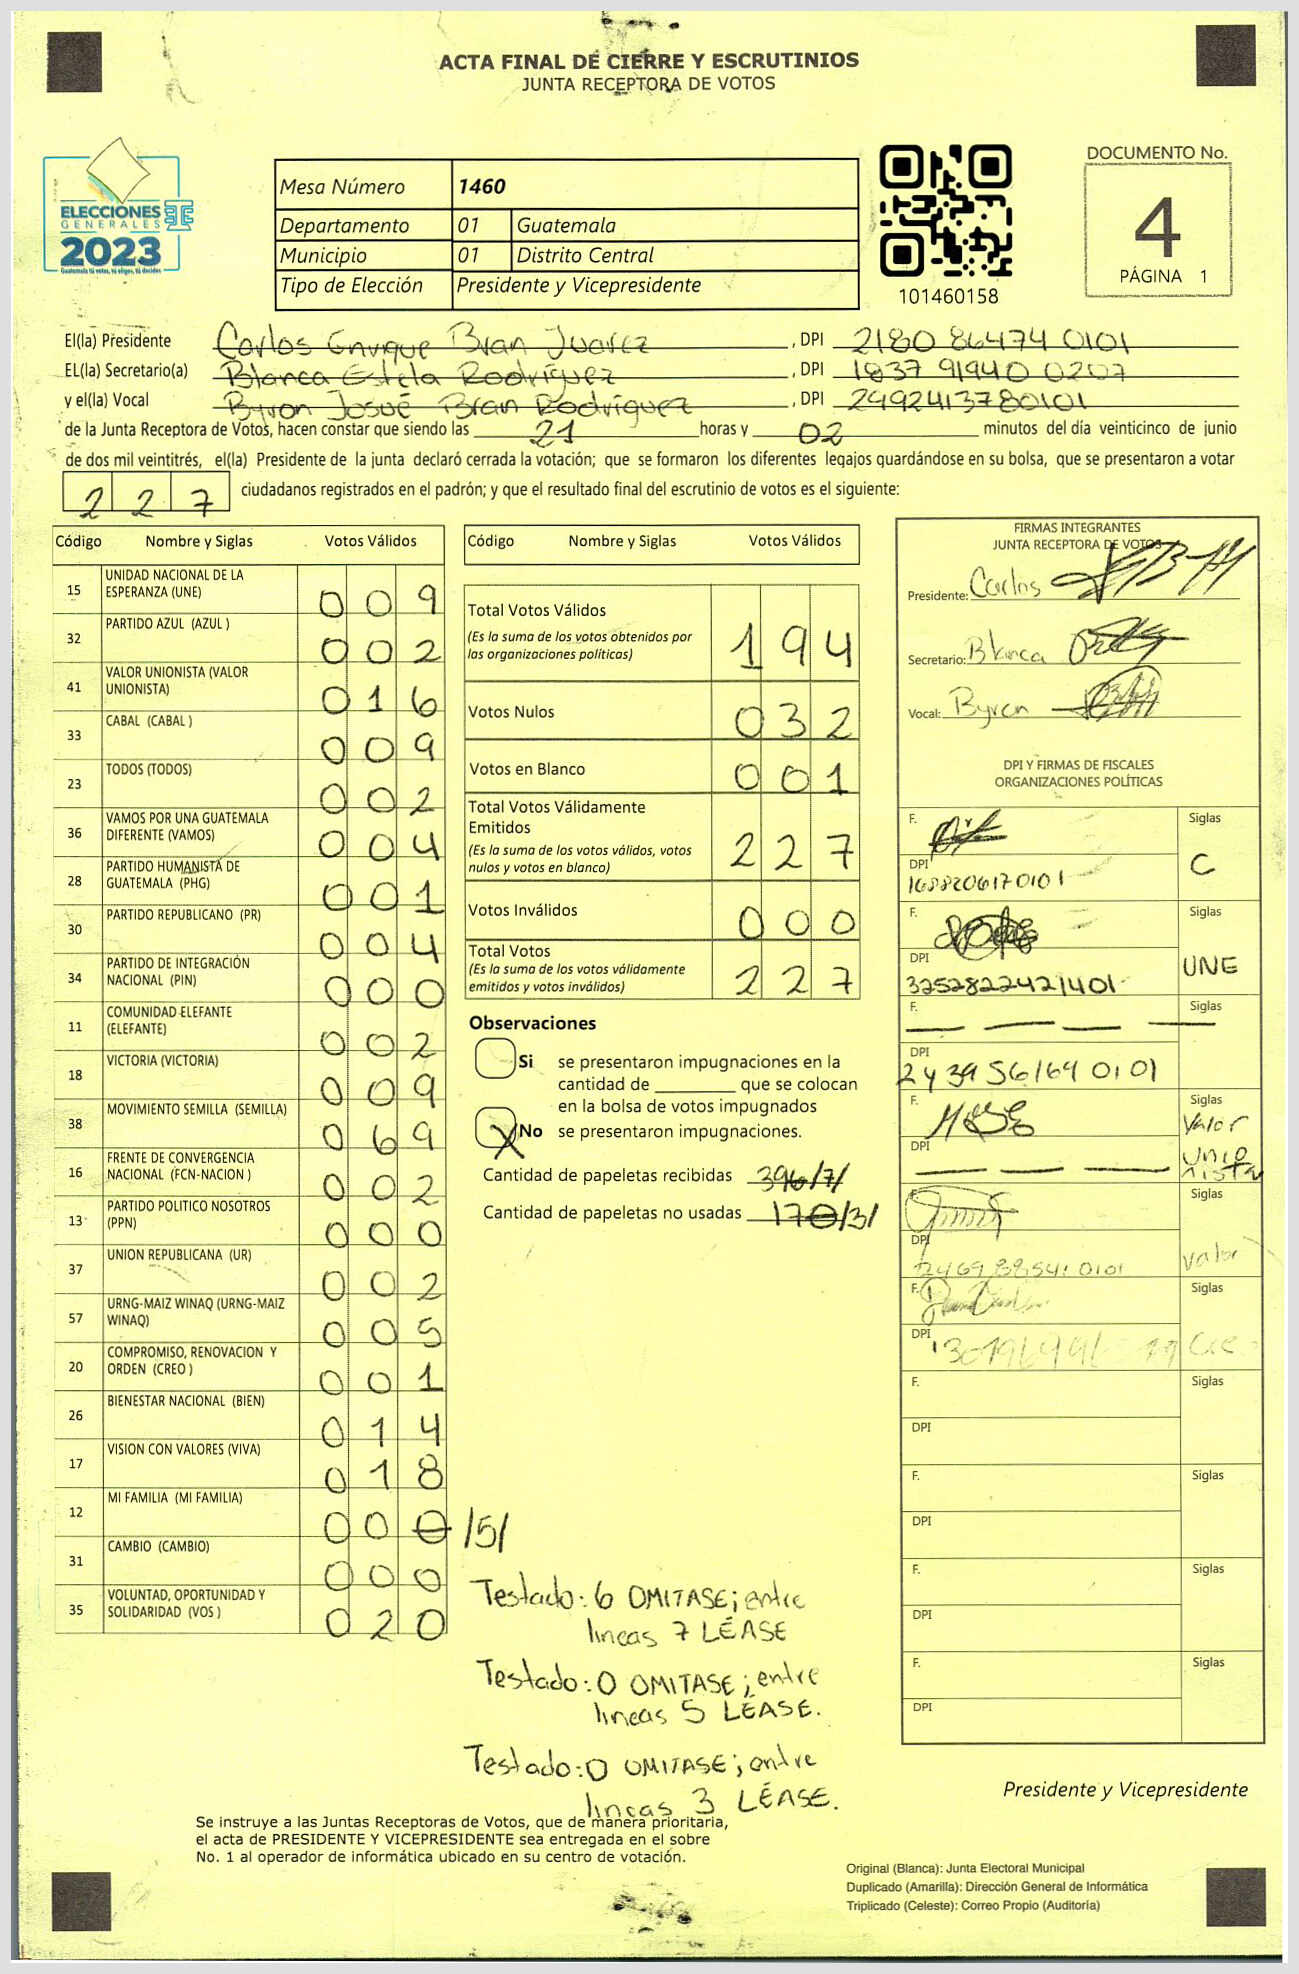 ACTA FINAL DE CIERRE Y ESCRUTINIOS
JUNTA RECEPTORA DE VOTOS
ELECCIONES
GENERALES
2023
Guatemala tú votas, tú eliges, tú decides
Mesa Número 1460
Departamento 01 Guatemala
Municipio 01 Distrito Central
Tipo de Elección Presidente y Vicepresidente
101460158
DOCUMENTO No.
4
PÁGINA 1
El(la) Presidente Carlos Enrique Bran Juarez, DPI 2180 86474 0101
EL(la) Secretario(a) Blanca Estela Rodríguez, DPI 1837 91940 0207
y el(la) Vocal Byron Josué Bran Rodríguez, DPI 2492413780101
de la Junta Receptora de Votos, hacen constar que siendo las 21 horas y 02 minutos del día veinticinco de junio
de dos mil veintitrés, el(la) Presidente de la junta declaró cerrada la votación; que se formaron los diferentes legajos guardándose en su bolsa, que se presentaron a votar
227 ciudadanos registrados en el padrón; y que el resultado final del escrutinio de votos es el siguiente:
Código Nombre y Siglas Votos Válidos
15 UNIDAD NACIONAL DE LA ESPERANZA (UNE) 009
32 PARTIDO AZUL (AZUL ) 002
41 VALOR UNIONISTA (VALOR UNIONISTA) 016
33 CABAL (CABAL ) 009
23 TODOS (TODOS) 002
36 VAMOS POR UNA GUATEMALA DIFERENTE (VAMOS) 004
28 PARTIDO HUMANISTA DE GUATEMALA (PHG) 001
30 PARTIDO REPUBLICANO (PR) 004
34 PARTIDO DE INTEGRACIÓN NACIONAL (PIN) 000
11 COMUNIDAD ELEFANTE (ELEFANTE) 002
18 VICTORIA (VICTORIA) 009
38 MOVIMIENTO SEMILLA (SEMILLA) 069
16 FRENTE DE CONVERGENCIA NACIONAL (FCN-NACION ) 002
13 PARTIDO POLITICO NOSOTROS (PPN) 000
37 UNION REPUBLICANA (UR) 002
57 URNG-MAIZ WINAQ (URNG-MAIZ WINAQ) 005
20 COMPROMISO, RENOVACION Y ORDEN (CREO ) 001
26 BIENESTAR NACIONAL (BIEN) 014
17 VISION CON VALORES (VIVA) 018
12 MI FAMILIA (MI FAMILIA) 000 /5/
31 CAMBIO (CAMBIO) 000
35 VOLUNTAD, OPORTUNIDAD Y SOLIDARIDAD (VOS ) 020
Código Nombre y Siglas Votos Válidos
Total Votos Válidos 194
(Es la suma de los votos obtenidos por
las organizaciones políticas)
Votos Nulos 032
Votos en Blanco 001
Total Votos Válidamente
Emitidos 227
(Es la suma de los votos válidos, votos
nulos y votos en blanco)
Votos Inválidos 000
Total Votos 227
(Es la suma de los votos válidamente
emitidos y votos inválidos)
Observaciones
Si se presentaron impugnaciones en la
cantidad de ________ que se colocan
en la bolsa de votos impugnados
X No se presentaron impugnaciones.
Cantidad de papeletas recibidas 396/7/
Cantidad de papeletas no usadas 170/3/
Testado: 6 OMITASE; entre
lineas 7 LÉASE
Testado: 0 OMITASE; entre
lineas 5 LÉASE.
Testado: 0 OMITASE; entre
lineas 3 LÉASE.
FIRMAS INTEGRANTES
JUNTA RECEPTORA DE VOTOS
Presidente: Carlos
Secretario: Blanca
Vocal: Byron
DPI Y FIRMAS DE FISCALES
ORGANIZACIONES POLÍTICAS
F. Siglas
DPI 1688206170101 C
F. Siglas
DPI 3252822421401 UNE
F. Siglas
DPI 2439561640101
F. Siglas
DPI Valor Unionista
F. Siglas
DPI Valor
F. Siglas
DPI
F. Siglas
DPI
F. Siglas
DPI
F. Siglas
DPI
F. Siglas
DPI
Presidente y Vicepresidente
Se instruye a las Juntas Receptoras de Votos, que de manera prioritaria,
el acta de PRESIDENTE Y VICEPRESIDENTE sea entregada en el sobre
No. 1 al operador de informática ubicado en su centro de votación.
Original (Blanca): Junta Electoral Municipal
Duplicado (Amarilla): Dirección General de Informática
Triplicado (Celeste): Correo Propio (Auditoría)